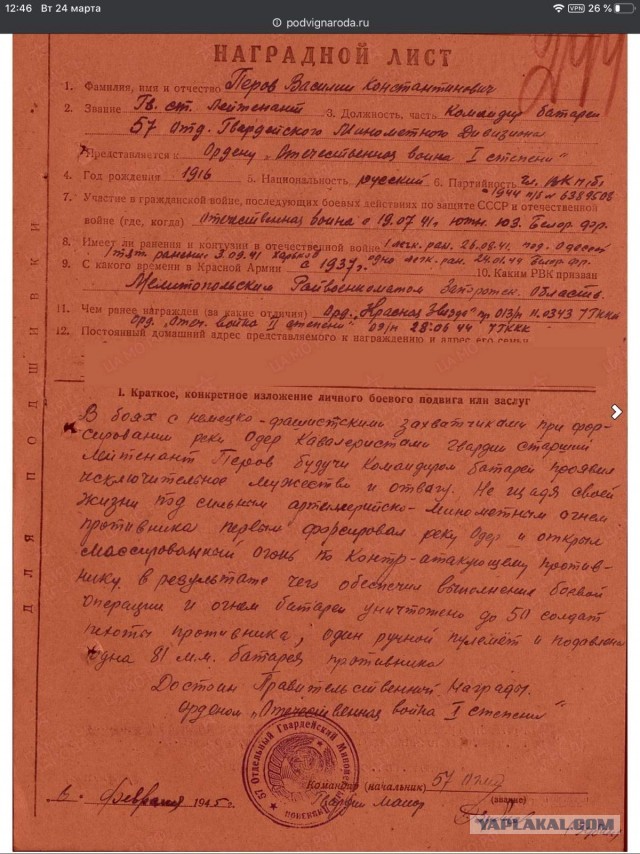 12:46 Вт 24 марта
VPN 26 %
podvignaroda.ru
НАГРАДНОЙ ЛИСТ
1. Фамилия, имя и отчество Перов Василий Константинович
2. Звание Гв. ст. Лейтенант 3. Должность, часть Командир батареи
57 Отд. Гвардейского Минометного Дивизиона
Представляется к Ордену „Отечественная война I степени"
4. Год рождения 1916 5. Национальность русский 6. Партийность чл. ВКП/б/
с 1944 п/б № 6389508
7. Участие в гражданской войне, последующих боевых действиях по защите СССР и отечественной
войне (где, когда) Отечественная война с 19.07.41г. южн. ЮЗ. Белор. фр.
8. Имеет ли ранения и контузии в отечественной войне 1 легк. ран. 26.08.41 под. Одессой
1 ранение 3.09.41 Харьков одно легк. ран. 24.01.44 Белор. фр.
9. С какого времени в Красной Армии с 1937г. 10. Каким РВК призван
Мелитопольским Райвоенкоматом Запорожск. Область.
11. Чем ранее награжден (за какие отличия) Орд. „Красная Звезда" пр 013/н 11.03.43 7ТККК
орд. „Отеч. война II степени" 09/н 28.06.44 7ТККК
12. Постоянный домашний адрес представляемого к награждению и адрес его семьи
I. Краткое, конкретное изложение личного боевого подвига или заслуг
В боях с немецко-фашистскими захватчиками при фор-
сировании реки Одер Кавалеристами Гвардии Старший
Лейтенант Перов будучи Командиром батареи проявил
исключительное мужество и отвагу. Не щадя своей
жизни под сильным артиллерийско-минометным огнем
противника первым форсировал реку Одер и открыл
массированный огонь по контр-атакующему против-
нику, в результате чего обеспечил выполнения боевой
операции и огнем батареи уничтожено до 50 солдат
пехоты противника, один ручной пулемёт и подавлена
одна 81 м.м. батарея противника
Достоин Правительственной Награды
орденом „Отечественная война I степени"
57 Отдельный Гвардейский Миномет
Командир (начальник) 57
Гвардии Майор
(звание)
Февраля 1945 г.
ДЛЯ ПОДШИВКИ
YAPLAKAL.COM